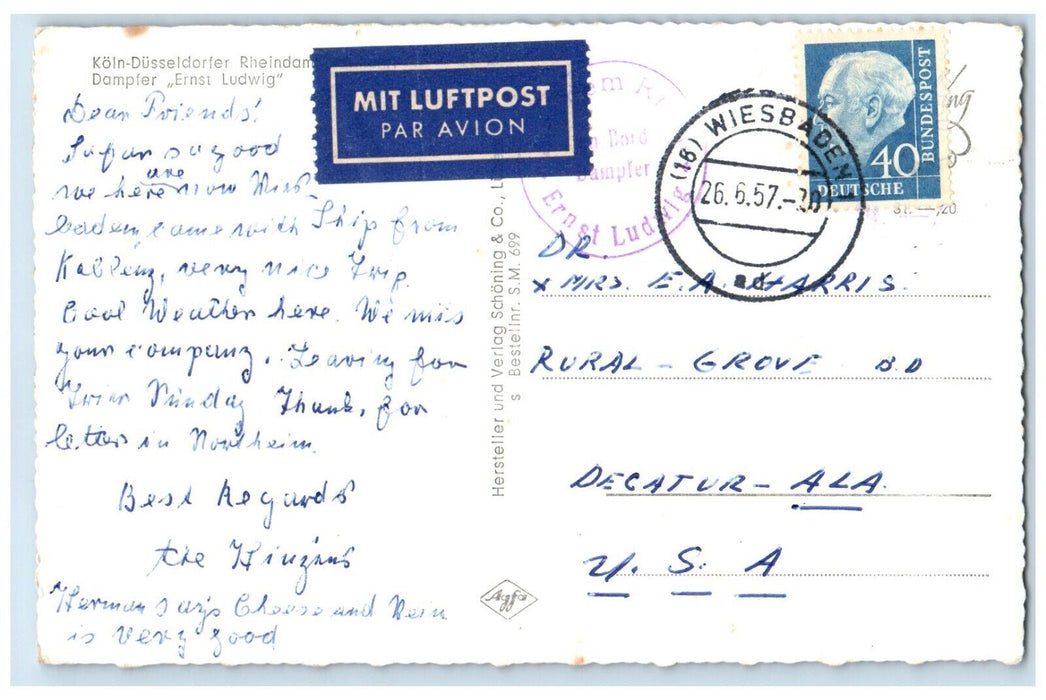 Köln-Düsseldorfer Rheindam
Dampfer „Ernst Ludwig"
Dear Friends!
Sofar so good
we are here now Wies
baden, came with Ship from
Koblenz, very nice Trip.
Cool Weather here. We miss
your company. Leaving for
Trier Sunday Thank, for
letter in Northeim.
Best Regards
the
Herman says Cheese and Wein
is very good
MIT LUFTPOST
PAR AVION
Hersteller und Verlag Schöning & Co., Lü
s Bestellnr. S.M. 699
Agfa
em R
n Bord
Dampfer
Ernst Ludwig
(16) WIESBADEN
26.6.57.-
DEUTSCHE
BUNDESPOST
40
DR.
x MRS. E.A. HARRIS.
RURAL - GROVE
DECATUR - ALA.
U. S. A